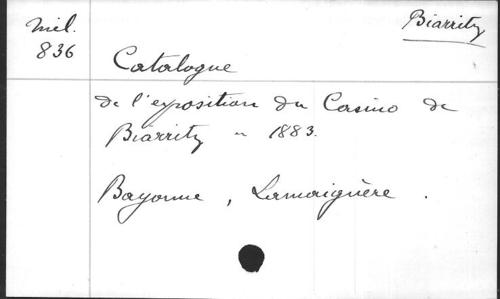 Mil.
836
Biarritz
Catalogue
de l'exposition du Casino de
Biarritz 1883.
Bayonne, Lamaignère.